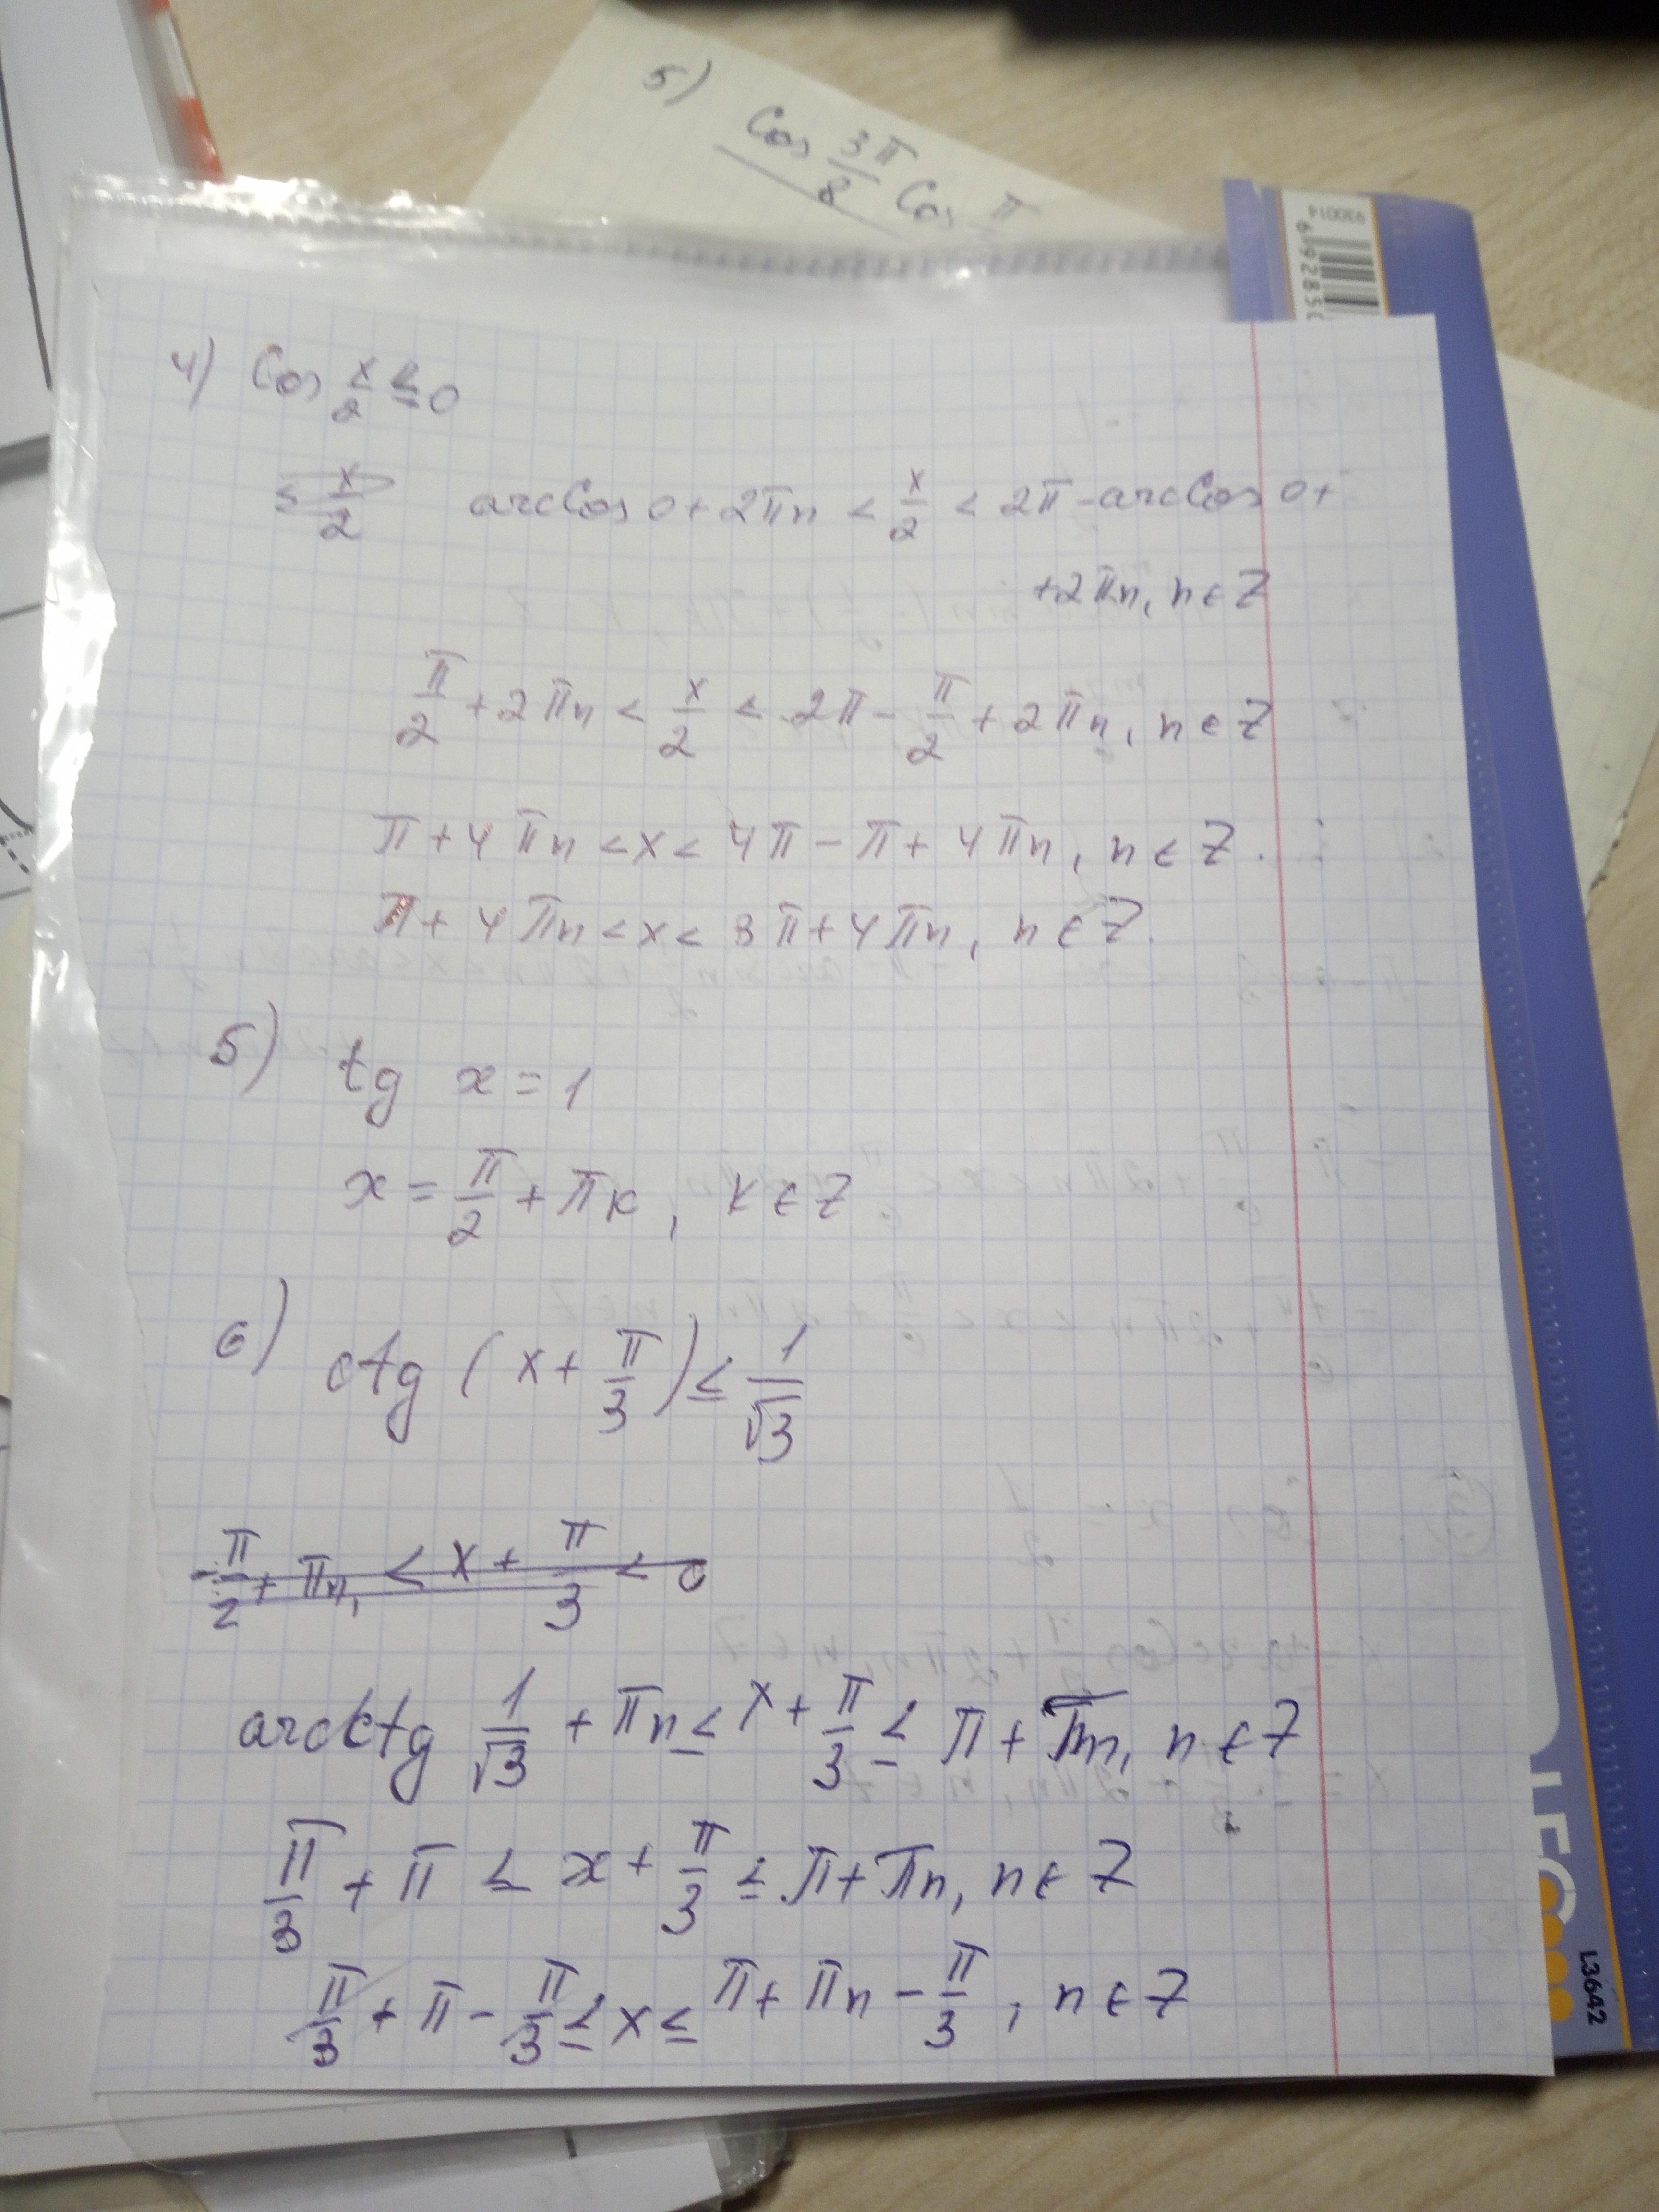 5)
Cos 3π/8 Cos π
930014
692850
4) Cos x/2 ≤ 0
x/2 arcCos 0 + 2πn < x/2 < 2π - arcCos 0 +
+ 2πn, n ∈ Z
π/2 + 2πn < x/2 < 2π - π/2 + 2πn, n ∈ Z
π + 4πn < x < 4π - π + 4πn, n ∈ Z.
π + 4πn < x < 3π + 4πn, n ∈ Z.
5) tg x = 1
x = π/2 + πk, k ∈ Z
6) ctg (x + π/3) ≤ 1/√3
-π/2 + πn, < x + π/3 < 0
arcctg 1/√3 + πn ≤ x + π/3 ≤ π + πn, n ∈ Z
π/3 + π ≤ x + π/3 ≤ π + πn, n ∈ Z
π/3 + π - π/3 ≤ x ≤ π + πn - π/3, n ∈ Z
L3642